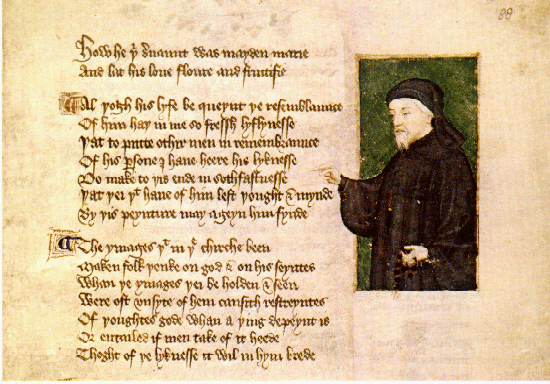 88
How he þͥ ſ̉uaunt was mayden marie
And lat his loue floure and fructifie
Al þogh his lyfe be queynt þe reſemblaunce
Of him haþ in me ſo freſſh lyflyneſſe
Þat to putte othir men in remembraunce
Of his ꝑſone I haue heere his lykneſſe
Do make to þis ende in ſothfaſtneſſe
Þat þei þͭ haue of him left þought & mynde
By þis peynture may ageyn him fynde
The ymages þͭ in þͤ chirche been
Maken folk þenke on god & on his ſeyntes
Whan þe ymages þei be holden & ſeen
Were oft vnſyte of hem cauſith reſtreyntes
Of þoughtes gode whan a þing depeynt is
Or entailed if men take of it heede
Thoght of þe lykneſſe it wil in hym brede